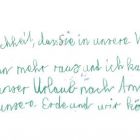 chkeit, dass sie in unsere W
n mehr raus und ich ka
unser Urlaub nach Am
unsere Erde und wir kö